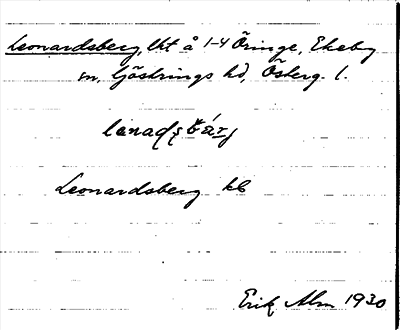 Leonardsberg, lht å 1-4 Öringe, Ekeby
sn, Göstrings hd, Österg. l.
Leonardsberg kb
Erik Alm 1930